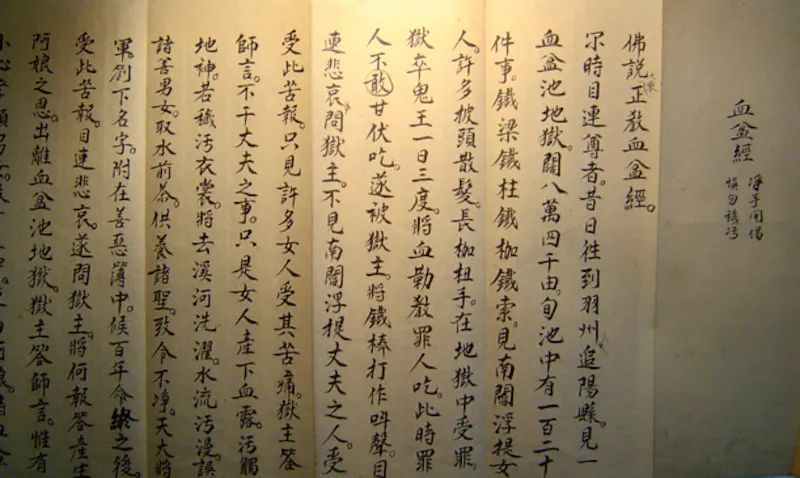 血盆經
淨手開偈
慎勿穢污
佛說正教血盆經。
尒時目連尊者。昔日往到羽州。追陽縣。見一
血盆池地獄。闊八萬四千由。旬池中有一百二十
件事。鐵梁鐵柱鐵枷鐵索。見南閻浮提女
人。許多披頭散髮。長枷杻手。在地獄中受罪。
獄卒鬼王一日三度。將血勒教罪人吃。此時罪
人不敢甘伏吃。遂被獄主。將鐵棒打作呌聲。目
連悲哀。問獄主。不見南閻浮提丈夫之人。受
受此苦報。只見許多女人受其苦痛。獄主答
師言。不干丈夫之事。只是女人產下血露。污觸
地神。若穢污衣裳。將去溪河洗濯。水流污漫。誤
諸善男女。取水前茶。供養諸聖。致令不淨。天大將
軍。劄下名字。附在善惡簿中。候百年命終之後。
受此苦報。目連悲哀。遂問獄主。將何報答產生
阿娘之恩。出離血盆池地獄。獄主答師言。惟有